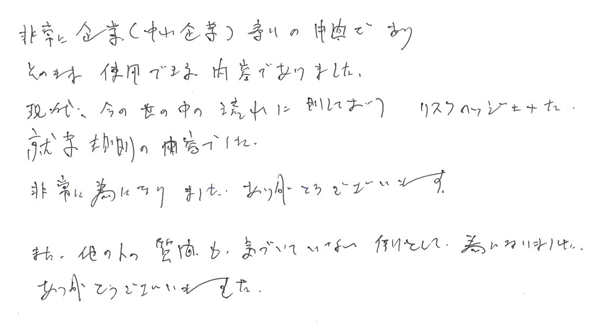 非常に企業(中小企業)寄りの内容であり
そのまま使用できる内容でありました。
現代、今の世の中の流れに則しており リスクヘッジとなった
就業規則の内容でした。
非常に為になりました。ありがとうございます。
また、他の人の質問も、気づいていない 例として、為になりました。
ありがとうございました。